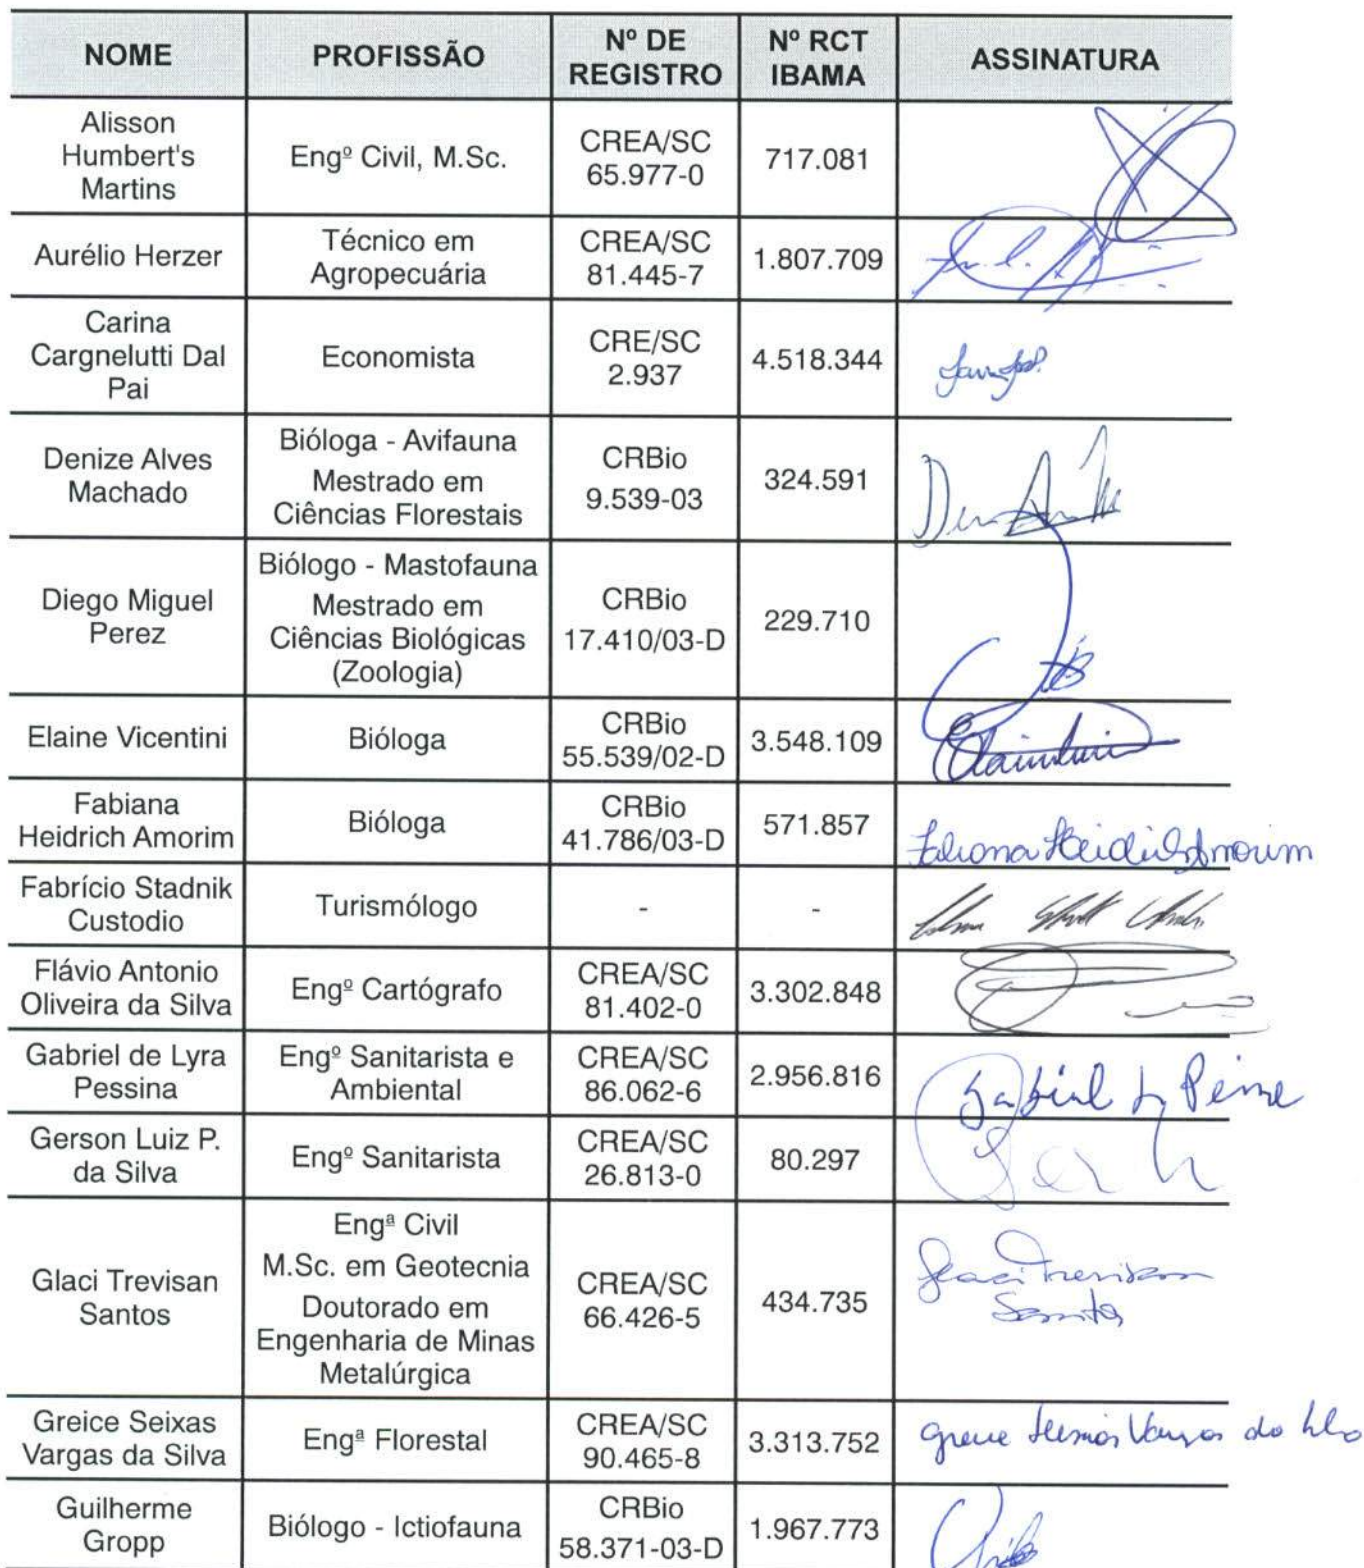 NOME PROFISSÃO Nº DE REGISTRO Nº RCT IBAMA ASSINATURA
Alisson Humbert's Martins Engº Civil, M.Sc. CREA/SC 65.977-0 717.081
Aurélio Herzer Técnico em Agropecuária CREA/SC 81.445-7 1.807.709
Carina Cargnelutti Dal Pai Economista CRE/SC 2.937 4.518.344
Denize Alves Machado Bióloga - Avifauna Mestrado em Ciências Florestais CRBio 9.539-03 324.591
Diego Miguel Perez Biólogo - Mastofauna Mestrado em Ciências Biológicas (Zoologia) CRBio 17.410/03-D 229.710
Elaine Vicentini Bióloga CRBio 55.539/02-D 3.548.109
Fabiana Heidrich Amorim Bióloga CRBio 41.786/03-D 571.857 Fabiana Heidrich Amorim
Fabrício Stadnik Custodio Turismólogo - -
Flávio Antonio Oliveira da Silva Engº Cartógrafo CREA/SC 81.402-0 3.302.848
Gabriel de Lyra Pessina Engº Sanitarista e Ambiental CREA/SC 86.062-6 2.956.816 Gabriel
Gerson Luiz P. da Silva Engº Sanitarista CREA/SC 26.813-0 80.297
Glaci Trevisan Santos Engª Civil M.Sc. em Geotecnia Doutorado em Engenharia de Minas Metalúrgica CREA/SC 66.426-5 434.735 Glaci Trevisan Santos
Greice Seixas Vargas da Silva Engª Florestal CREA/SC 90.465-8 3.313.752
Guilherme Gropp Biólogo - Ictiofauna CRBio 58.371-03-D 1.967.773